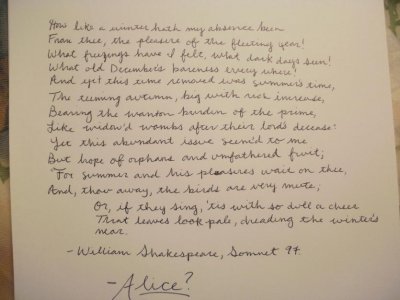 How like a winter hath my absence been
From thee, the pleasure of the fleeting year!
What freezings have I felt, what dark days seen!
What old December's bareness every where!
And yet this time removed was summer's time,
The teeming autumn, big with rich increase,
Bearing the wanton burden of the prime,
Like widow'd wombs after their lords' decease:
Yet this abundant issue seem'd to me
But hope of orphans and unfathered fruit;
For summer and his pleasures wait on thee,
And, thou away, the birds are very mute;
Or, if they sing, 'tis with so dull a cheer
That leaves look pale, dreading the winter's
near.
- William Shakespeare, Sonnet 97.
- Alice?